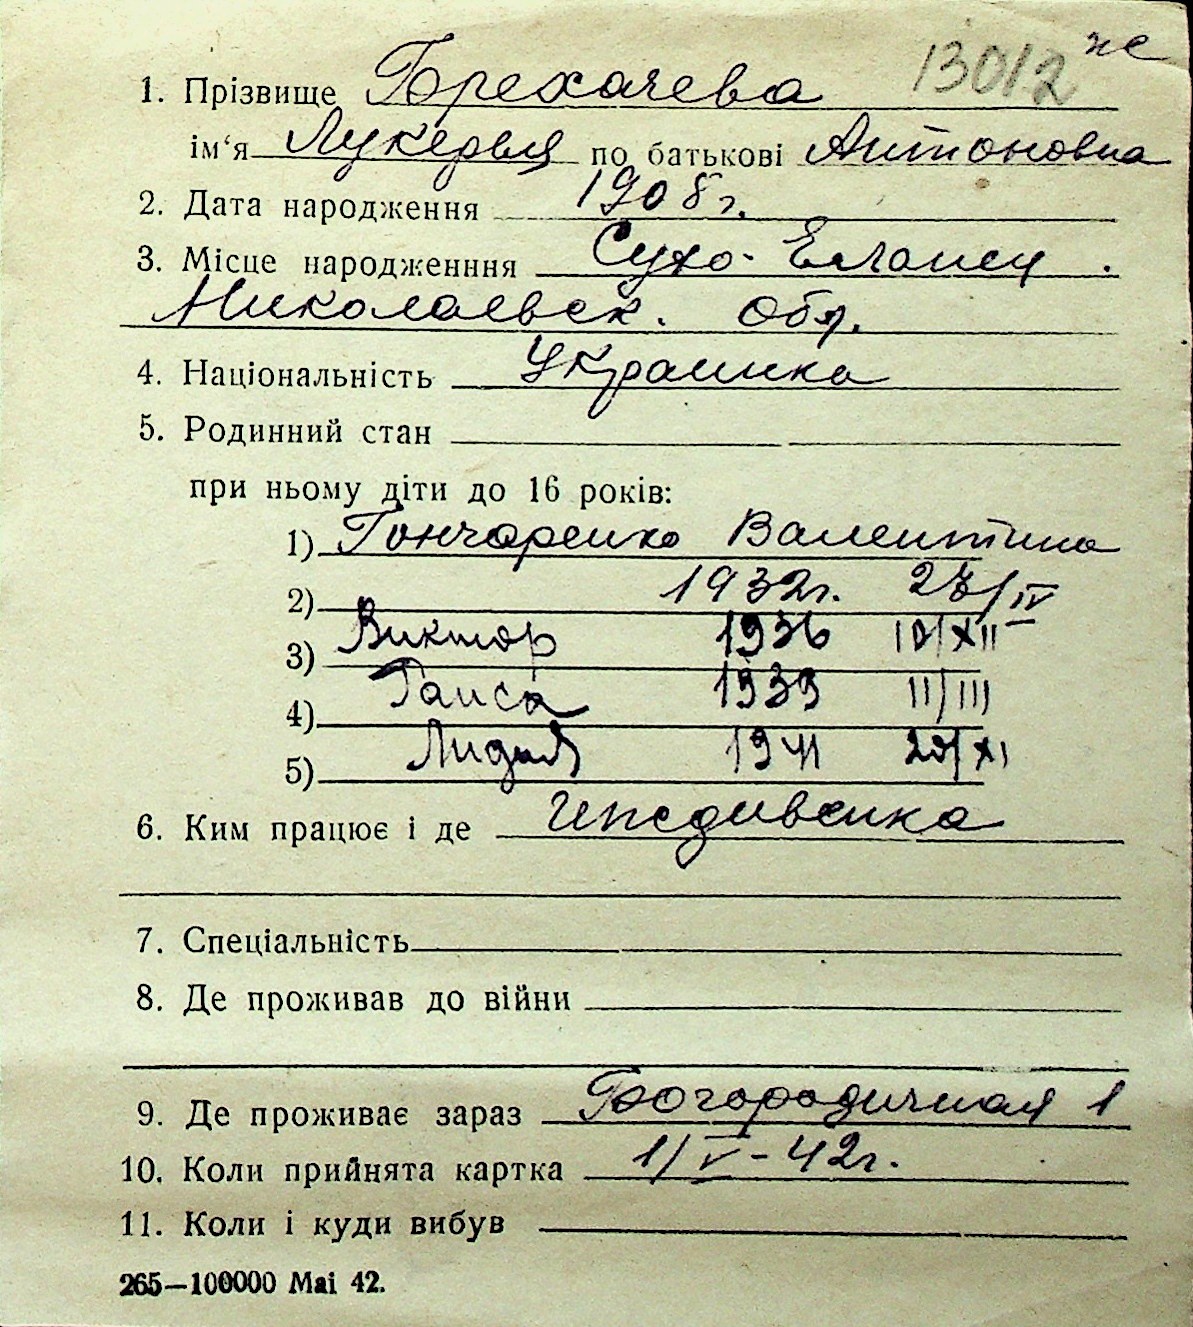 13012 же
1. Прізвище Брехачева
ім‘я Лукерья по батькові Антоновна
2. Дата народження 1908 г.
3. Місце народженння Сухо-Еланец.
Николаевск. обл.
4. Національність Украинка
5. Родинний стан
при ньому діти до 16 років:
1) Гончаренко Валентина
2) 1932г. 23/IV
Виктор 1936 10/XII
3)
Таиса 1939 11/III
4)
Лидия 1941 20/XI
5)
6. Ким працює і де Иждивенка
7. Спеціальність
8. Де проживав до війни
9. Де проживає зараз Богородичная 1
10. Коли прийнята картка 1/V-42г.
11. Коли і куди вибув
265—100000 Mai 42.